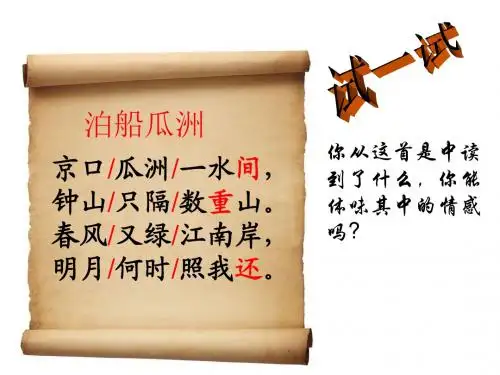 泊船瓜洲
京口/瓜洲/一水间，
钟山/只隔/数重山。
春风/又绿/江南岸，
明月/何时/照我还。
试一试
你从这首是中读
到了什么，你能
体味其中的情感
吗？